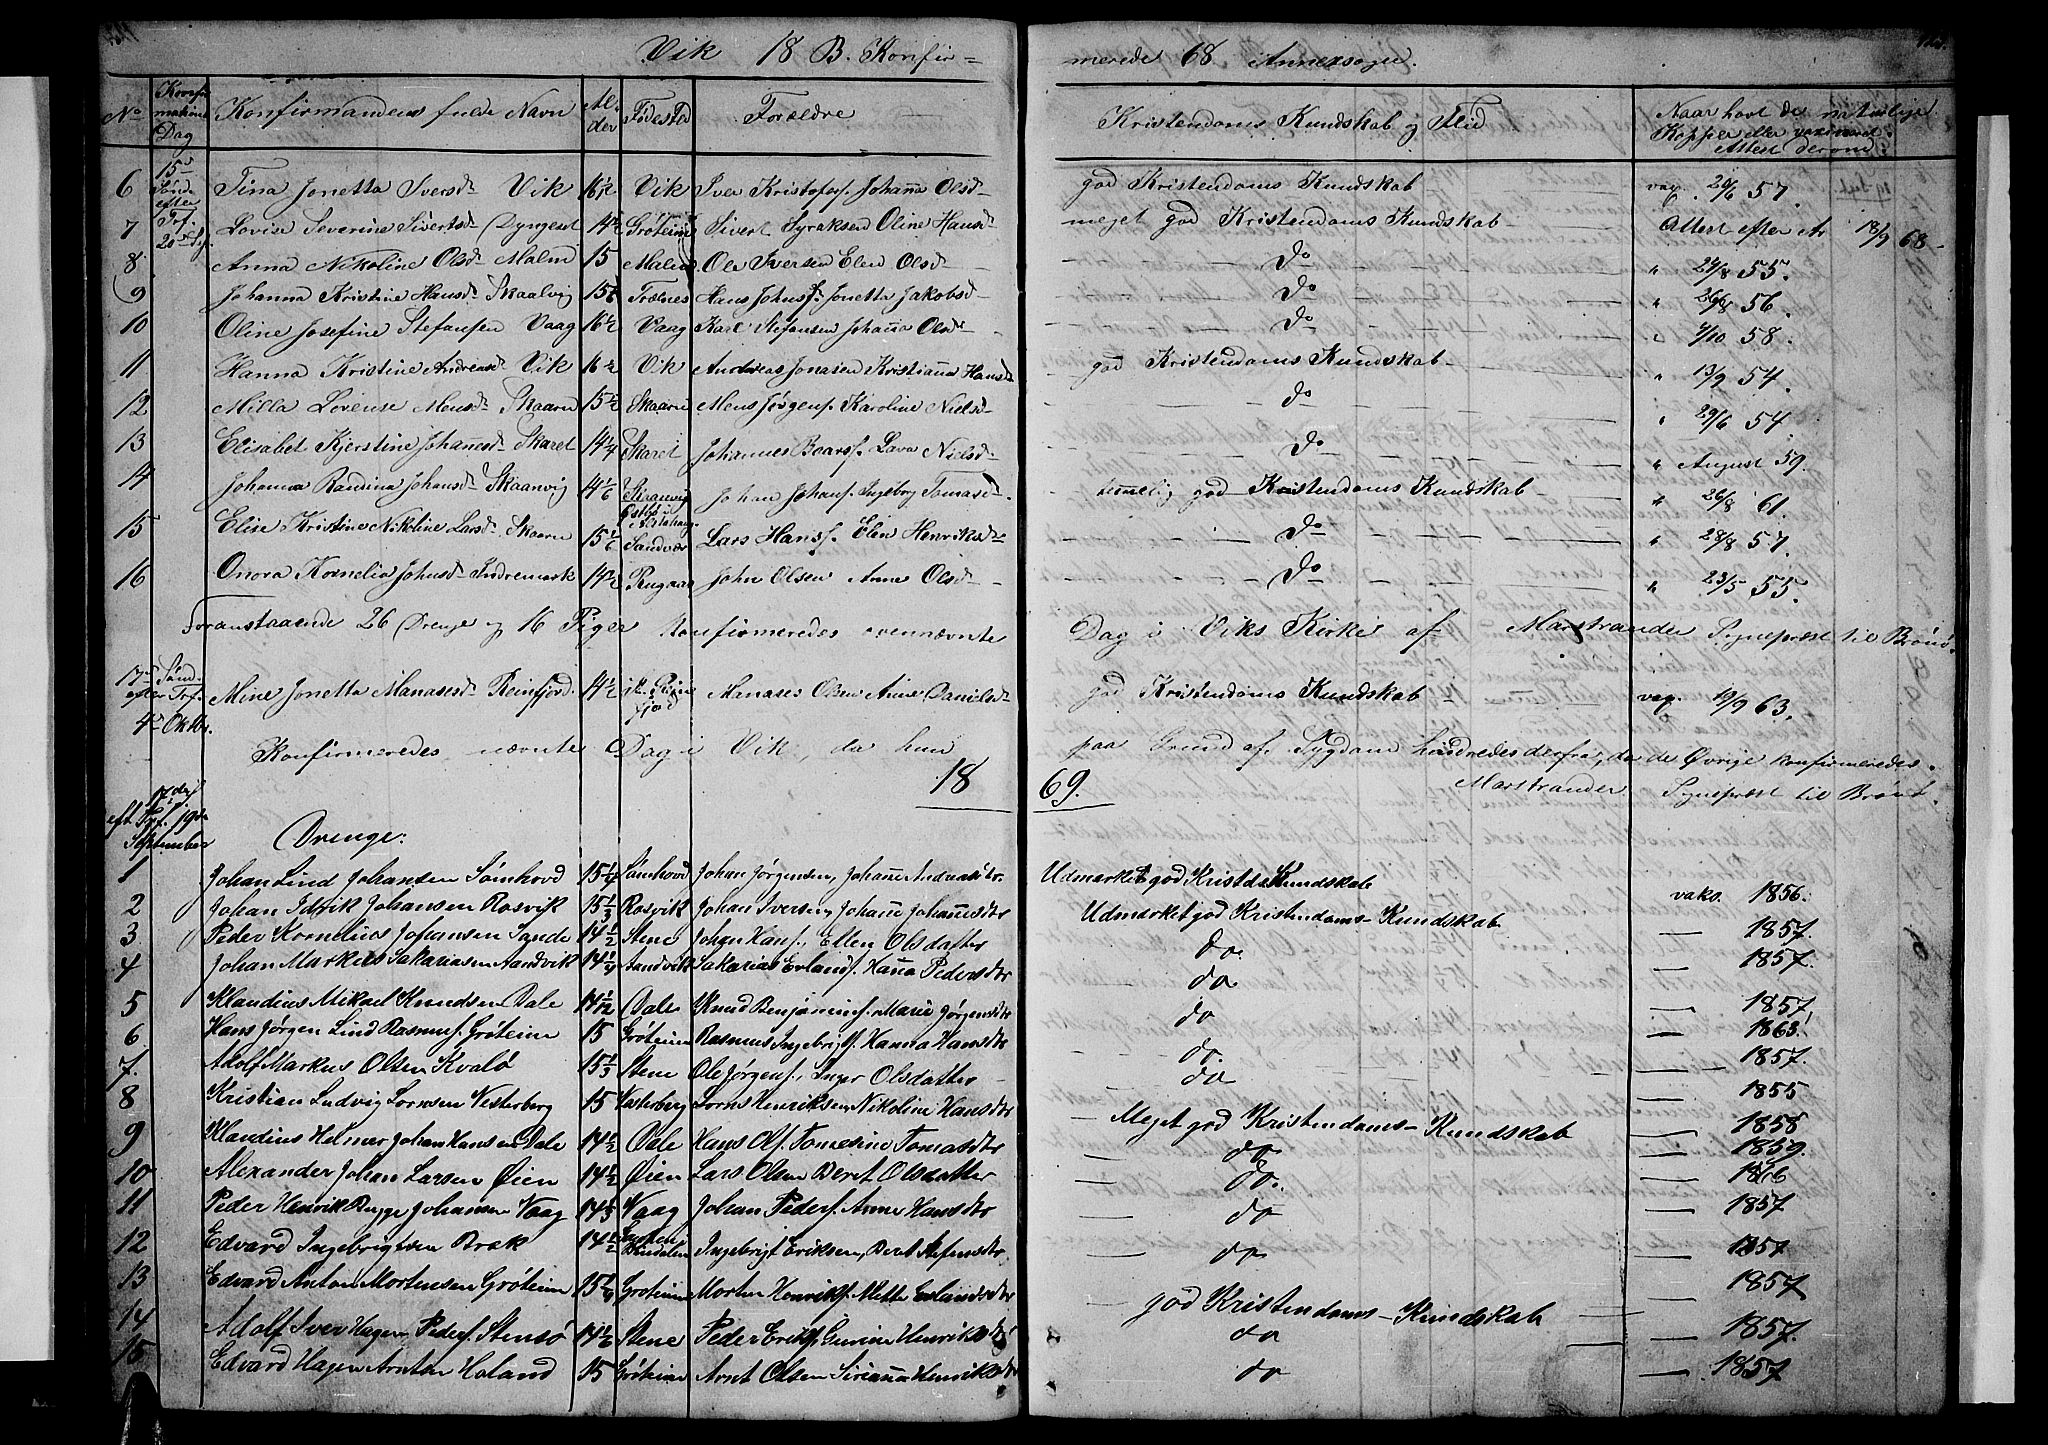 Vik 18 B. Konfir= merede 68 Annexsogn.
No Konfirmations Dag Konfirmandens fulde Navn Alder Fødested Forældre Kristendoms Kundskab og Flid Naar havt de naturlige Kopper eller vaxineret Attest derom
15de Sønd. efter Trf. 20de Sep.
6 Tina Jonetta Iversd. Vik 16 1/12 Vik Iver Kristofers. Johana Olsd. god Kristendoms Kundskab vax. 20/6 57.
7 Lovise Severine Siverts Dyngeset 14 1/2 Grøteim Sivert Syraksen Oline Hansd. meget god Kristendoms Kundskab Attest efter At 18/9 68
8 Anna Nikoline Olsd. Malm 15 Malm Ole Iversen Elen Olsd. Do " 24/8 55.
9 Johanna Kristine Hansd. Skaalvig Trælnes Hans Johns. Jonetta Jakobsd. Do " 26/8 56.
10 Oline Josefine Stefansen Vaag 16 1/2 Vaag Karl Stefansen Johana Olsd. Do " 4/10 58.
11 Hanna Kristine Andreasd. Vik 16 1/2 Vik Andreas Jonasen Kristiana Hansd. god Kristendoms Kundskab " 13/9 54.
12 Milla Lovense Mensd. Skaarn 15 1/2 Skaarn Mens Jørgens. Karoline Nielsd. Do " 29/6 54
13 Elisabet Kjerstine Johanesd. Skaret 14 1/4 Skaret Johannes Baars. Lava Nielsd. Do " August 59.
14 Johanna Randina Johansd. Skaanvig 14 1/6 Johan Johans. Ingeborg Tomasd. temmelig god Kristendoms Kundskab " 26/8 61.
15 Elise Kristine Nikoline Larsd. Skaarn 15 1/6 Sandvær Lars Hans. Elen Henriksd. Do " 28/8 57.
16 Onora Kornelia Johnsd. Indremark 14 1/2 Rugaas John Olsen Anne Olsd. Do " 23/5 55.
Foranstaaende 26 Drenge og 16 Piger Konfirmeredes ovennævnte Dag i Viks Kirke af Marstrander Sogneprest til Brønø.
17de Sønd. efter Trf. 4de Oktbr. Mine Jonetta Manasesd. Reinfjord 14 1/2 Manases Olsen Anne Danielsd. god Kristendoms Kundskab vax. 19/9 63.
Konfirmeredes nævnte Dag i Vik, da hun paa Grund af Sygdom hindredes derfra, da de Øvrige konfirmeredes.
Marstrander Sogneprest til Brønø.
18 69.
17de eft Trf. 19de September
Drenge:
1 Johan Lind Johansen Sømhovd 15 1/4 Sømhovd Johan Jørgensen, Johane Andreasdtr. Udmærket god Kristds Kundskab vaks. 1856.
2 Johan Idrik Johansen Rosvik 15 1/3 Rosvik Johan Iversen, Johane Johannesdtr Udmærket god Kristendoms-Kundskab — 1857
3 Peder Kornelius Johansen Sande 14 1/2 Stene Johan Hans., Ellen Olsdatter do — 1857.
4 Johan Markus Sakariasen Sandvik 14 1/4 Sandvik Sakarias Erlands. Hana Pedersdtr do
5 Klaudius Mikael Knudsen Dale 14 1/12 Dale Knud Benjamins. Marie Jørgensdtr do — 1857
6 Hans Jørgen Lind Rasmus. Grøteim 15 Grøteim Rasmus Ingebrigts. Hanna Hansdtr do. — 1863
7. Adolf Markus Olsen Kvalø 15 1/3 Stene Ole Jørgens., Inger Olsdatter do — 1857.
8 Kristian Ludvig Sørnsen Vesterberg 15 Vesterberg Sørns Henriksen, Nikoline Hansdtr Meget god Kristendoms-Kundskab — 1855
9 Klaudius Helmer Johan Hansen Dale 14 1/2 Dale Hans Ols. Tomesine Tomasdtr do — 1858
10 Alexander Johan Larsen Øien 14 1/2 Øien Lars Olsen Beret Olsdatter do. — 1859.
11 Peder Henrik Bugge Johansen Vaag Vaag Johan Peders. Anne Hansdtr do — 1857
12 Edvard Ingebrigtsen Bræk 14 1/2 Bindalen Ingebrigt Eriksen, Beret do — 1857
13 Edvard Anton Mortensen Grøteim 15 1/4 Grøteim Morten Henriks. Mette Erlandsdtr god Kristendoms-Kundskab — 1857
14 Adolf Iver Hagen Peders. Stensø 14 1/6 Stene Peder Eriks. Gurine Henriksdtr do — 1857.
15 Edvard Hagen Arntsen Holand 15 Grøteim Arnt Olsen Siriana Henriksdtr do — 1857